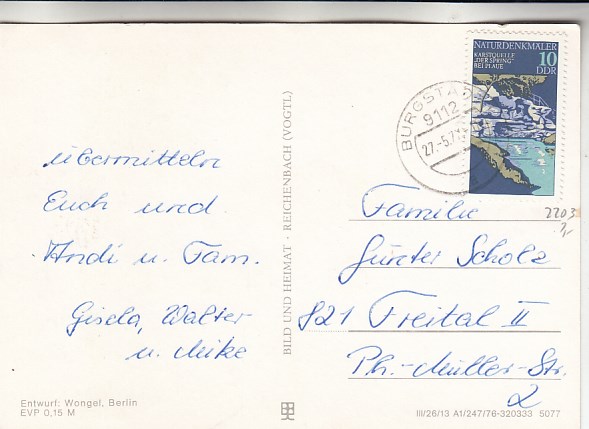 NATURDENKMÄLER
KARSTQUELLE
"DER SPRING"
BEI PLAUE
10
DDR
BURGSTÄDT
9112
27.-5.7
übermitteln
Euch und
Andi u. Fam.
Gisela, Walter
u. Meike
BILD UND HEIMAT · REICHENBACH (VOGTL)
Familie
Günter Scholz
821 Freital II
Ph.-Müller-Str.
2
2203
Entwurf: Wongel, Berlin
EVP 0,15 M
III/26/13 A1/247/76-320333 5077